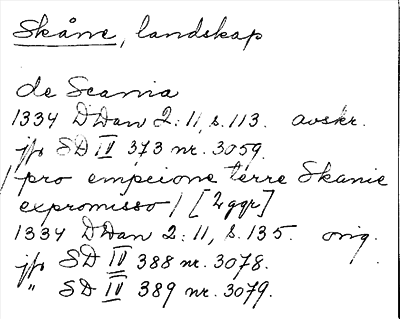 Skåne, landskap
de Scania
1334 DDan 2: 11, s. 113. avskr.
jfr SD IV 373 nr. 3059.
/pro empcione terre Skanie
expromisso/ [2 ggr]
1334 DDan 2: 11, s. 135. orig.
jfr SD IV 388 nr. 3078.
" SD IV 389 nr. 3079.